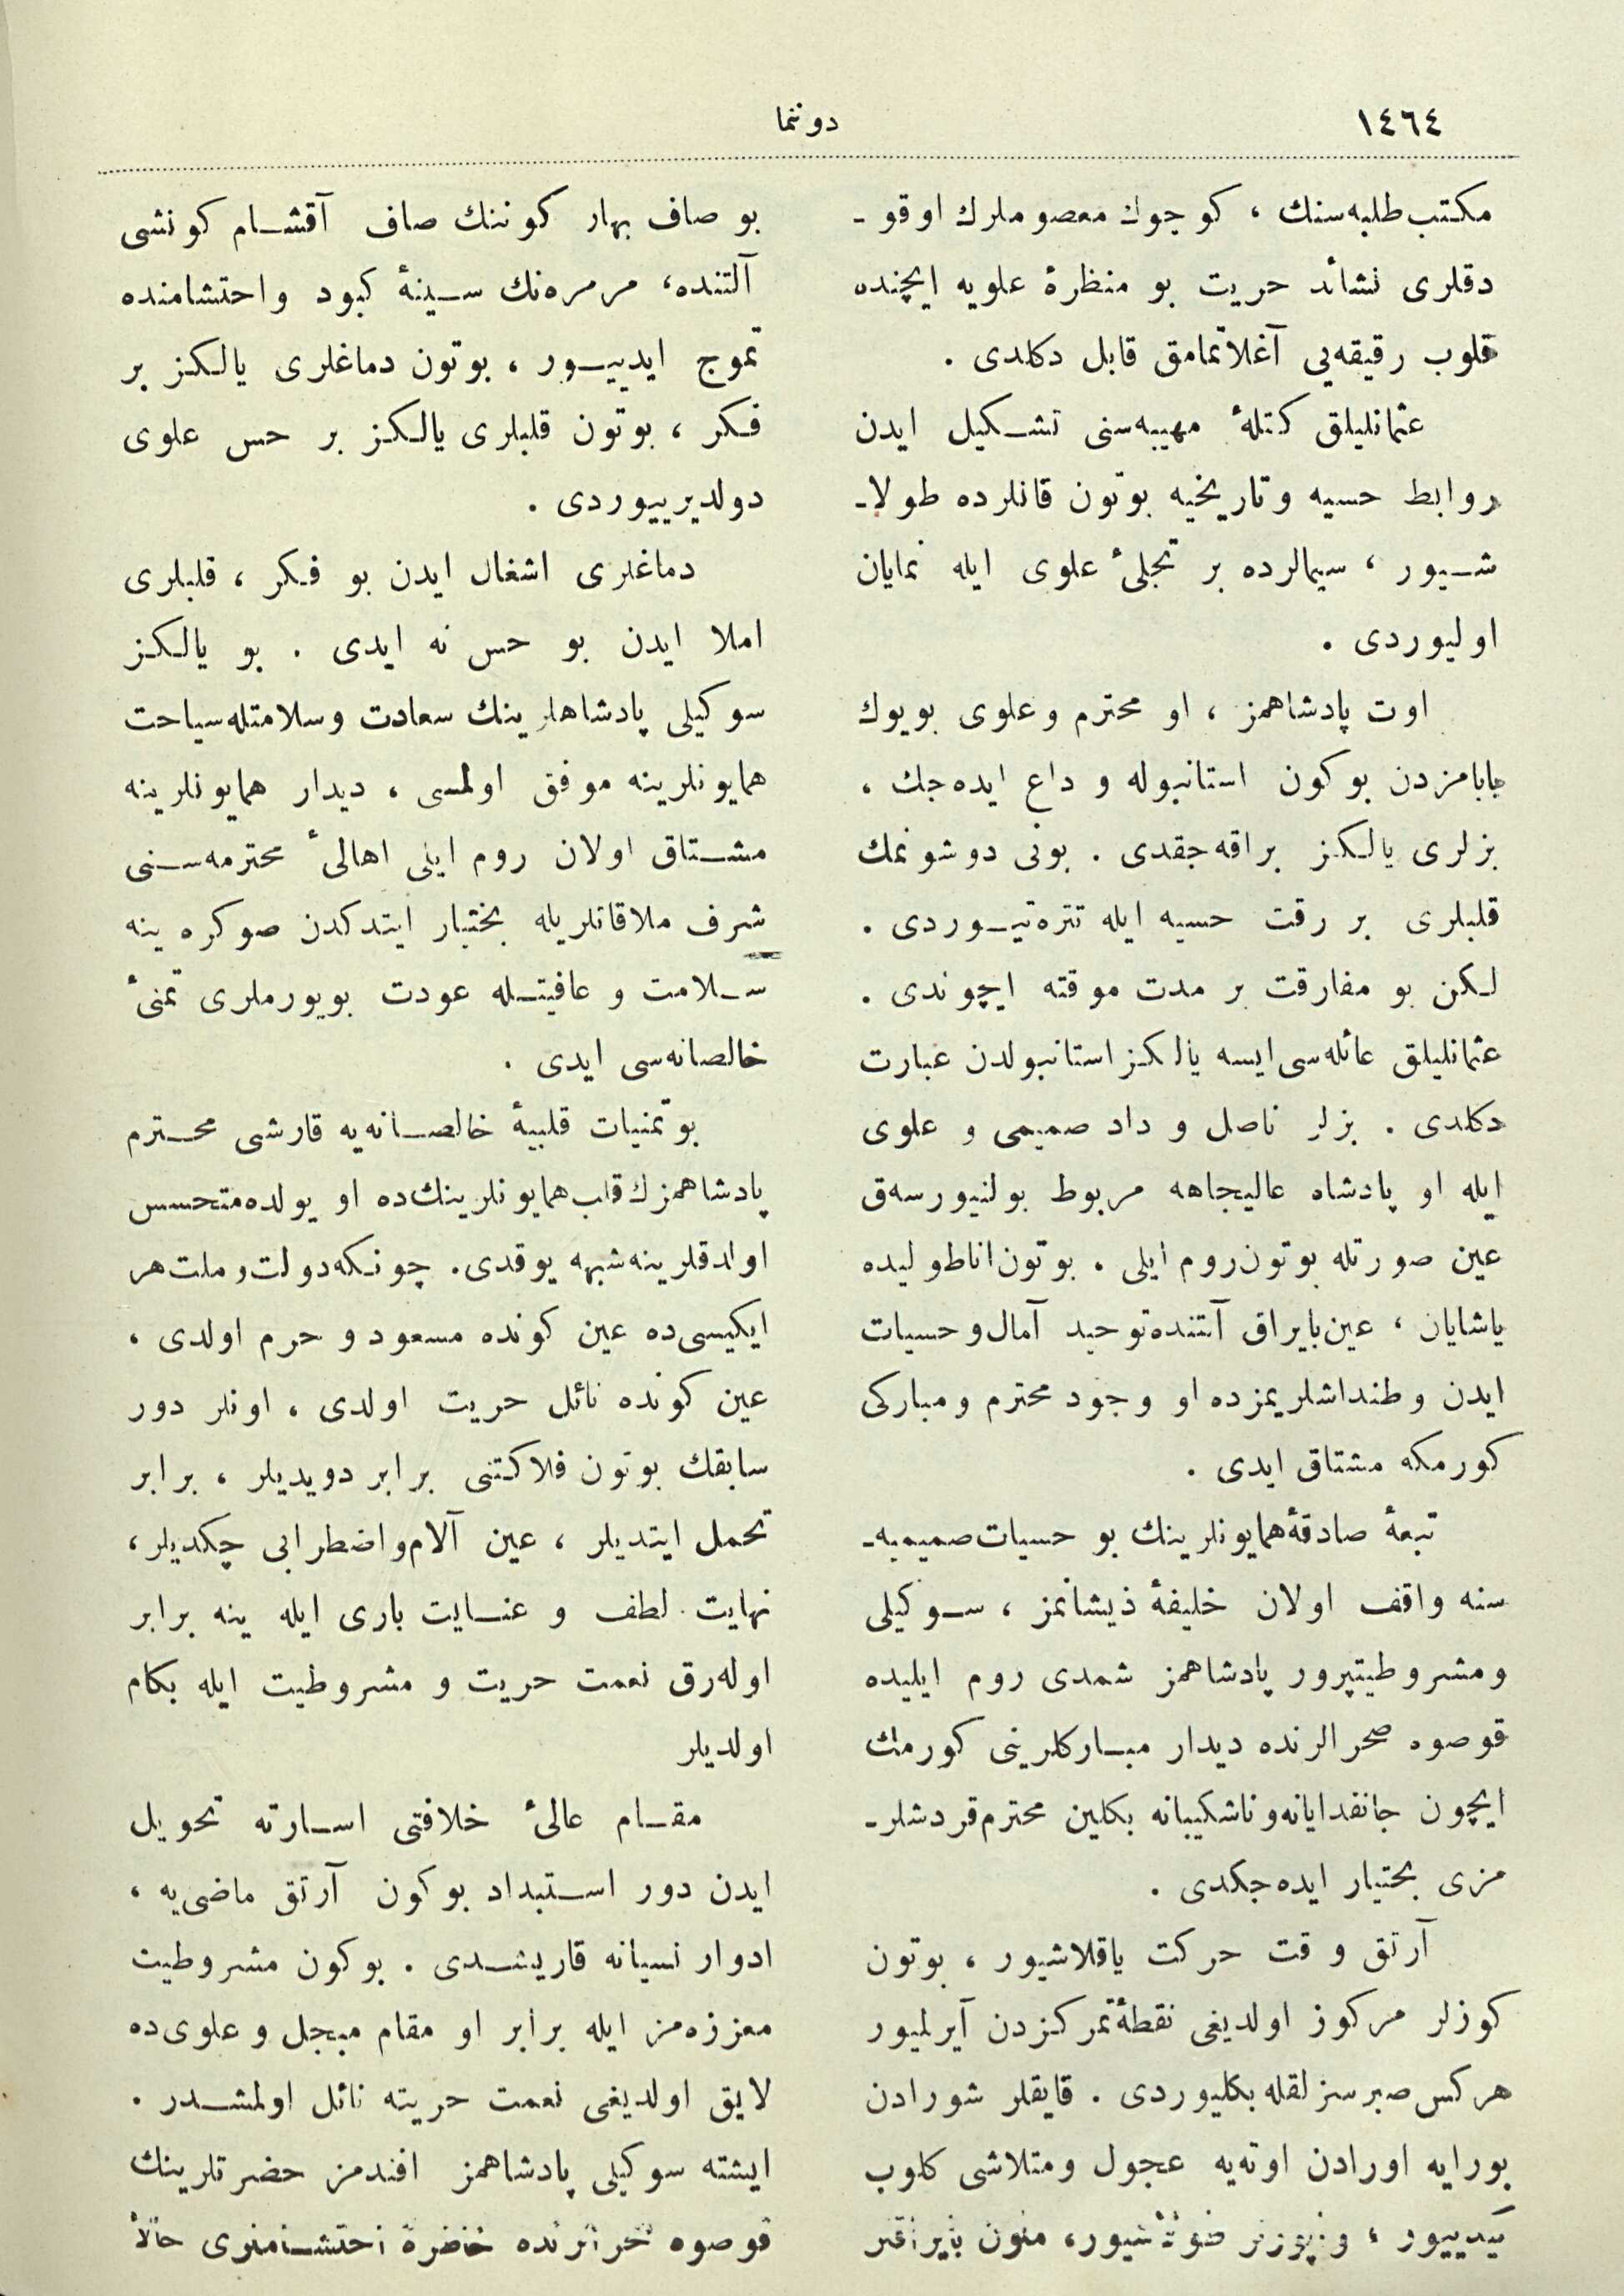 ١٤٦٤
دوننما
مكتب طلبه‌سنك ، كوچوك معصوملرك اوقو ـ
دقلرى نشائد حريت بو منظرهٔ علويه ايچنده
قلوب رقيقه‌يى آغلاتمامق قابل دكلدى .
عثمانليلق كتلهٔ مهيبه‌سنى تشكيل ايدن
روابط حسيه وتاريخيه بوتون قانلرده طولا ـ
شيور ، سيمالرده بر تجلىٔ علوى ايله نمايان
اوليوردى .
اوت پادشاهمز ، او محترم وعلوى بويوك
بابامزدن بوكون استانبوله وداع ايده‌جك ،
بزلرى يالكز براقه‌جقدى . بونى دوشونمك
قلبلرى بر رقت حسيه ايله تتره‌تيوردى .
لكن بو مفارقت بر مدت موقته ايچوندى .
عثمانليلق عائله‌سى ايسه يالكز استانبولدن عبارت
دكلدى . بزلر ناصل وداد صميمى و علوى
ايله او پادشاه عاليجاهه مربوط بولنيورسه‌ق
عين صورتله بوتون روم ايلى . بوتون اناطوليده
ياشايان ، عين بايراق آلتنده توحيد آمال وحسيات
ايدن وطنداشلريمزده او وجود محترم ومباركى
كورمكه مشتاق ايدى .
تبعهٔ صادقهٔ همايونلرينك بو حسيات صميميه ـ
سنه واقف اولان خليفهٔ ذيشانمز ، سوكيلى
ومشروطيتپرور پادشاهمز شمدى روم ايليده
قوصوه صحرالرنده ديدار مباركلرينى كورمك
ايچون جانفدايانه وناشكيبانه بكلين محترم قردشلر ـ
مزى بختيار ايده‌جكدى .
آرتق وقت حركت ياقلاشيور ، بوتون
كوزلر مركوز اولديغى نقطهٔ تمركزدن آيرلميور
هركس صبرسزلقله بكليوردى . قايقلر شورادن
بورايه اورادن اوته‌يه عجول ومتلاشى كلوب
كيدييور ، واپورلر طولاشيور، متون بايراقلر
بو صاف بهار كوننك صاف آقشام كونشى
آلتنده، مرمره‌نك سينهٔ كبود واحتشامنده
تموج ايدييور ، بوتون دماغلرى يالكز بر
فكر ، بوتون قلبلرى يالكز بر حس علوى
دولديرييوردى .
دماغلرى اشغال ايدن بو فكر ، قلبلرى
املا ايدن بو حس نه ايدى . بو يالكز
سوكيلى پادشاهلرينك سعادت وسلامتله سياحت
همايونلرينه موفق اولمسى ، ديدار همايونلرينه
مشتاق اولان روم ايلى اهالىٔ محترمه‌سنى
شرف ملاقاتلريله بختيار ايتدكدن صوكره ينه
سلامت و عافيتله عودت بويورملرى تمنىٔ
خالصانه‌سى ايدى .
بو تمنيات قلبيهٔ خالصانه‌يه قارشى محترم
پادشاهمزك قلب همايونلرينك‌ده او يولده متحسس
اولدقلرينه شبهه يوقدى. چونكه دولت وملت هر
ايكيسى‌ده عين كونده مسعود و خرم اولدى ،
عين كونده نائل حريت اولدى ، اونلر دور
سابقك بوتون فلاكتنى برابر دويديلر ، برابر
تحمل ايتديلر ، عين آلام واضطرابى چكديلر ،
نهايت لطف و عنايت بارى ايله ينه برابر
اوله‌رق نعمت حريت و مشروطيت ايله بكام
اولديلر
مقام عالىٔ خلافتى اسارته تحويل
ايدن دور استبداد بوكون آرتق ماضى‌يه ،
ادوار نسيانه قاريشدى . بوكون مشروطيت
معززه‌مز ايله برابر او مقام مبجل وعلوى‌ده
لايق اولديغى نعمت حريته نائل اولمشدر .
ايشته سوكيلى پادشاهمز افندمز حضرتلرينك
قوصوه احتشامنرى حالا